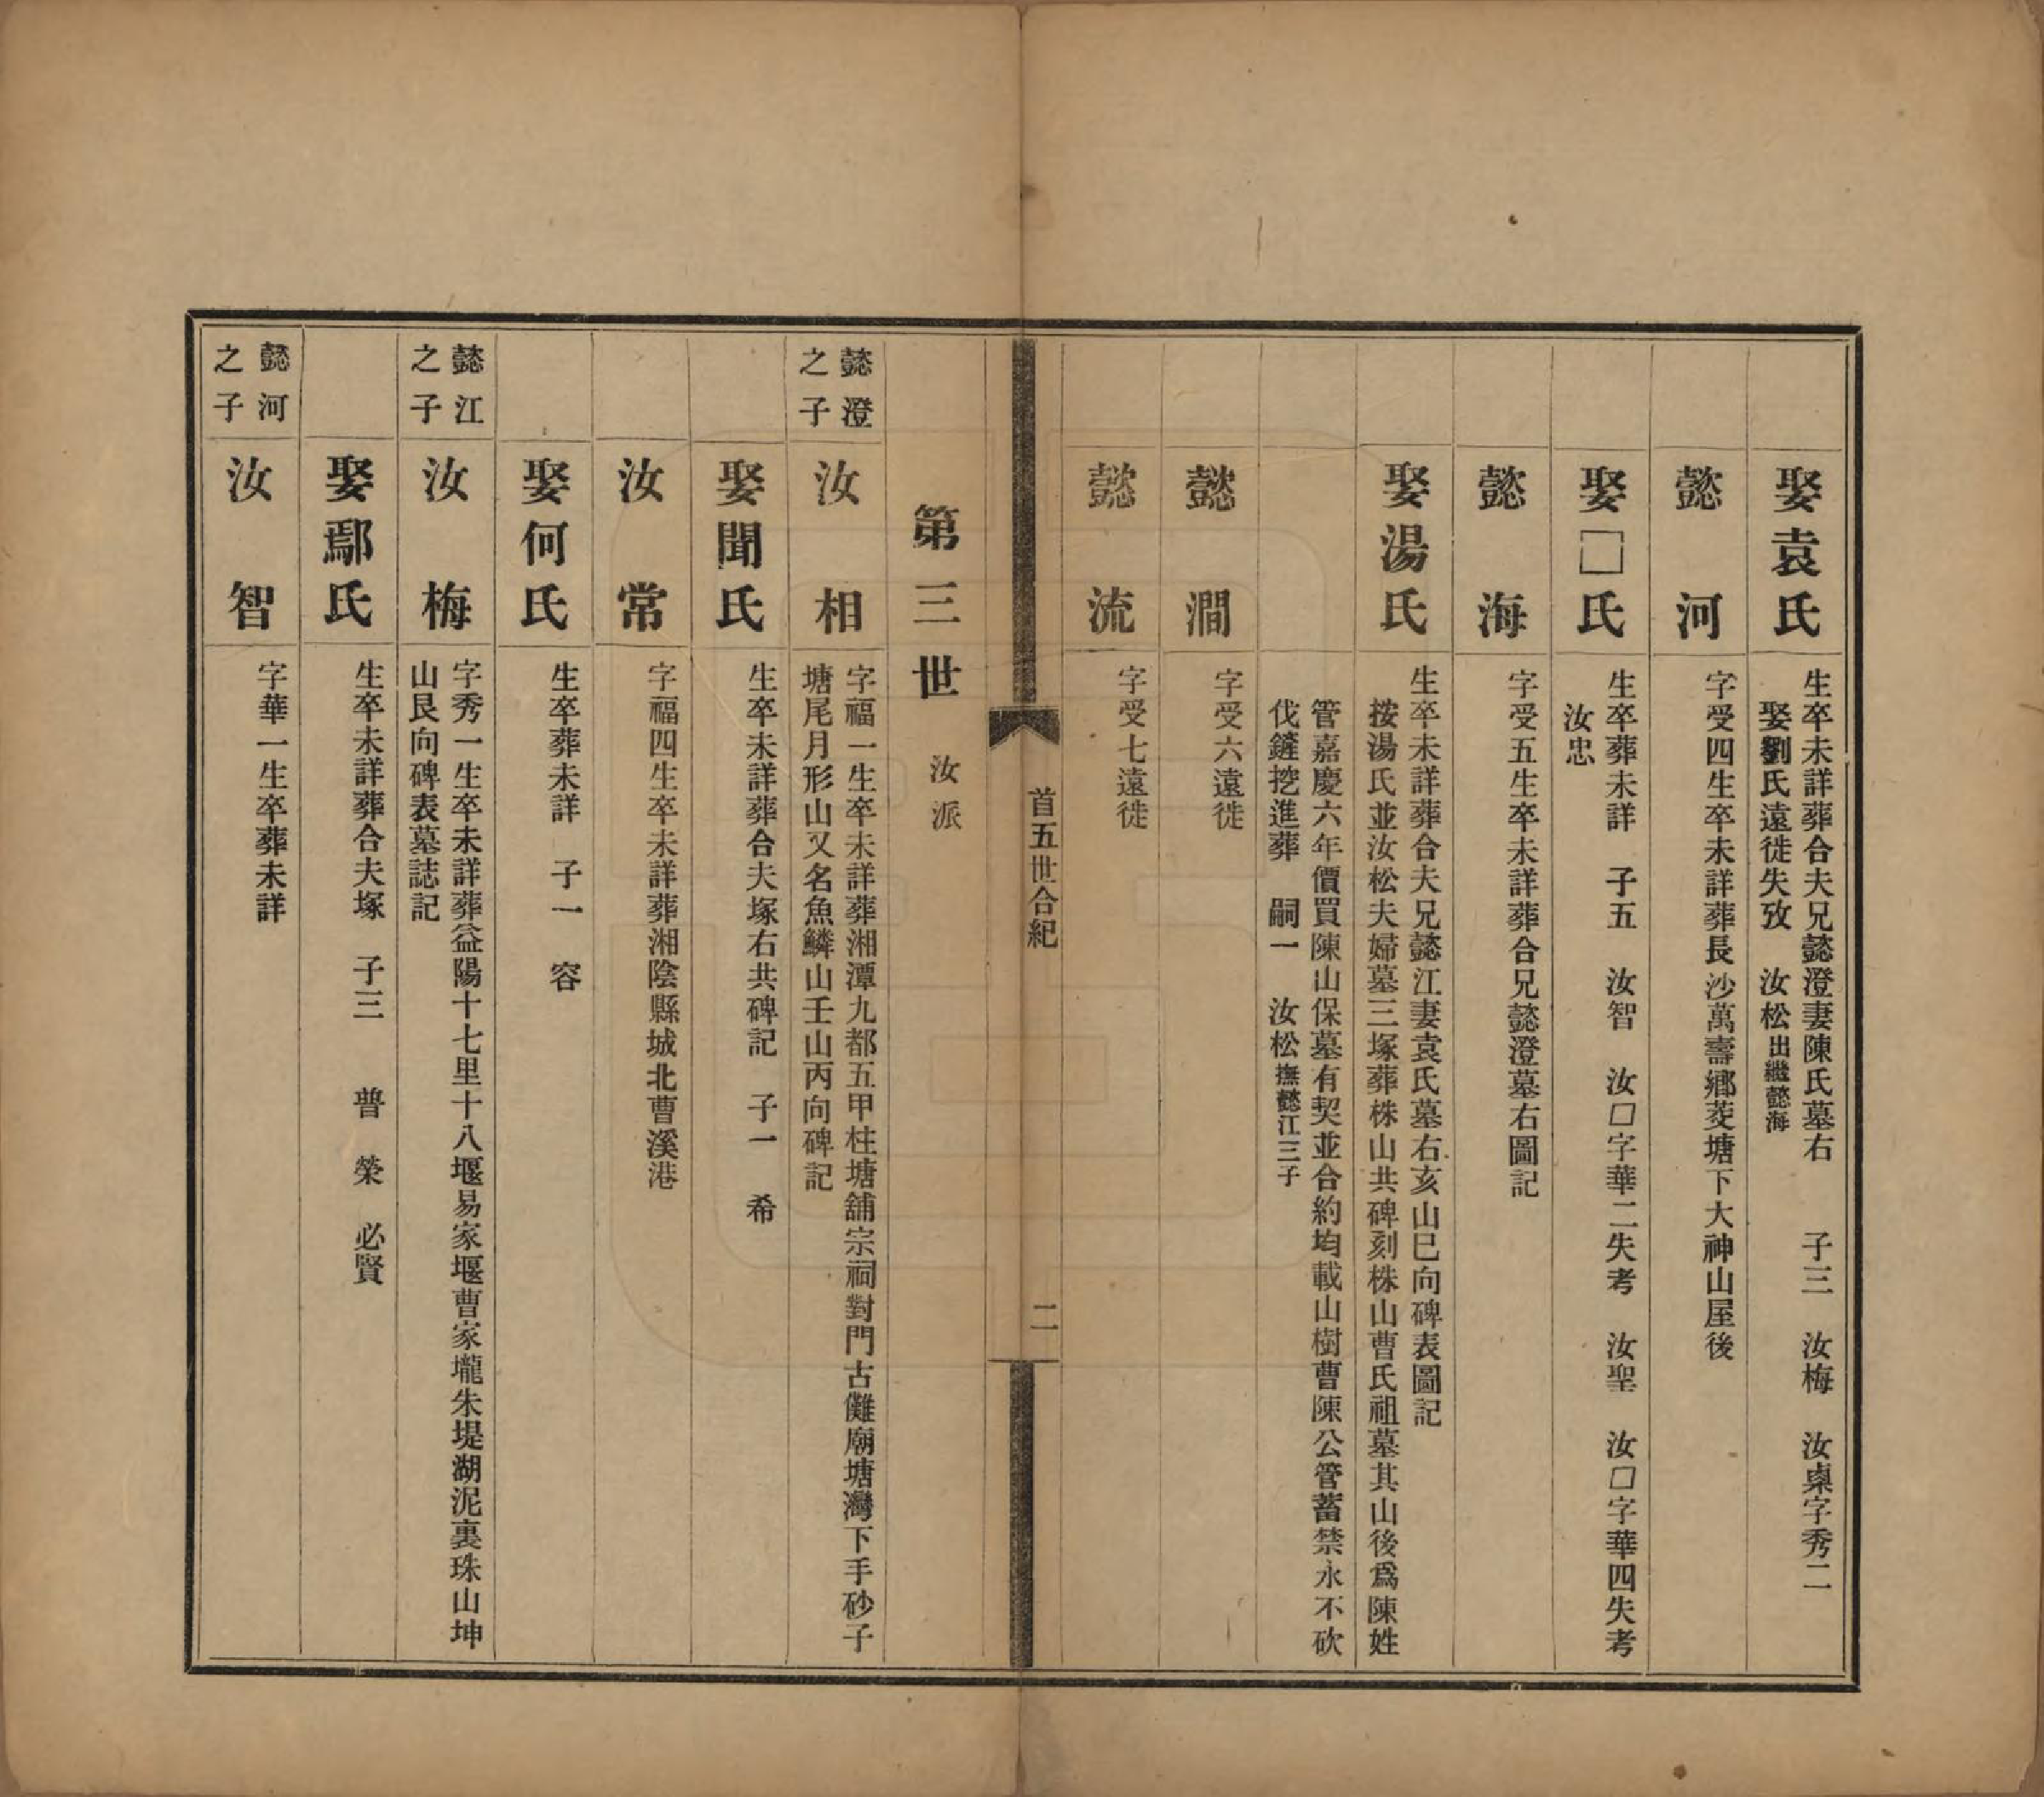 娶袁氏
生卒未詳葬合夫兄懿澄妻陳氏墓右　子三　汝梅　汝㮚字秀二
娶劉氏遠徙失攷　汝松出繼懿海
懿河
字受四生卒未詳葬長沙萬壽鄉茭塘下大神山屋後
娶□氏
生卒葬未詳　子五　汝智　汝□字華二失考　汝聖　汝□字華四失考
汝忠
懿海
字受五生卒未詳葬合兄懿澄墓右圖記
娶湯氏
生卒未詳葬合夫兄懿江妻袁氏墓右亥山巳向碑表圖記
按湯氏並汝松夫婦墓三塚葬株山共碑刻株山曹氏祖墓其山後爲陳姓
管嘉慶六年價買陳山保墓有契並合約均載山樹曹陳公管蓄禁永不砍
伐鏟挖進葬　嗣一　汝松撫懿江三子
懿澗
字受六遠徙
懿流
字受七遠徙
首五世合紀
二
第三世　汝派
懿澄之子
汝相
字福一生卒未詳葬湘潭九都五甲柱塘舖宗祠對門古儺廟塘灣下手砂子
塘尾月形山又名魚鱗山壬山丙向碑記
娶聞氏
生卒未詳葬合夫塚右共碑記　子一　希
汝常
字福四生卒未詳葬湘陰縣城北曹溪港
娶何氏
生卒葬未詳　子一　容
懿江之子
汝梅
字秀一生卒未詳葬益陽十七里十八堰易家堰曹家壠朱堤湖泥裏珠山坤
山艮向碑表墓誌記
娶鄢氏
生卒未詳葬合夫塚　子三　普　榮　必賢
懿河之子
汝智
字華一生卒葬未詳